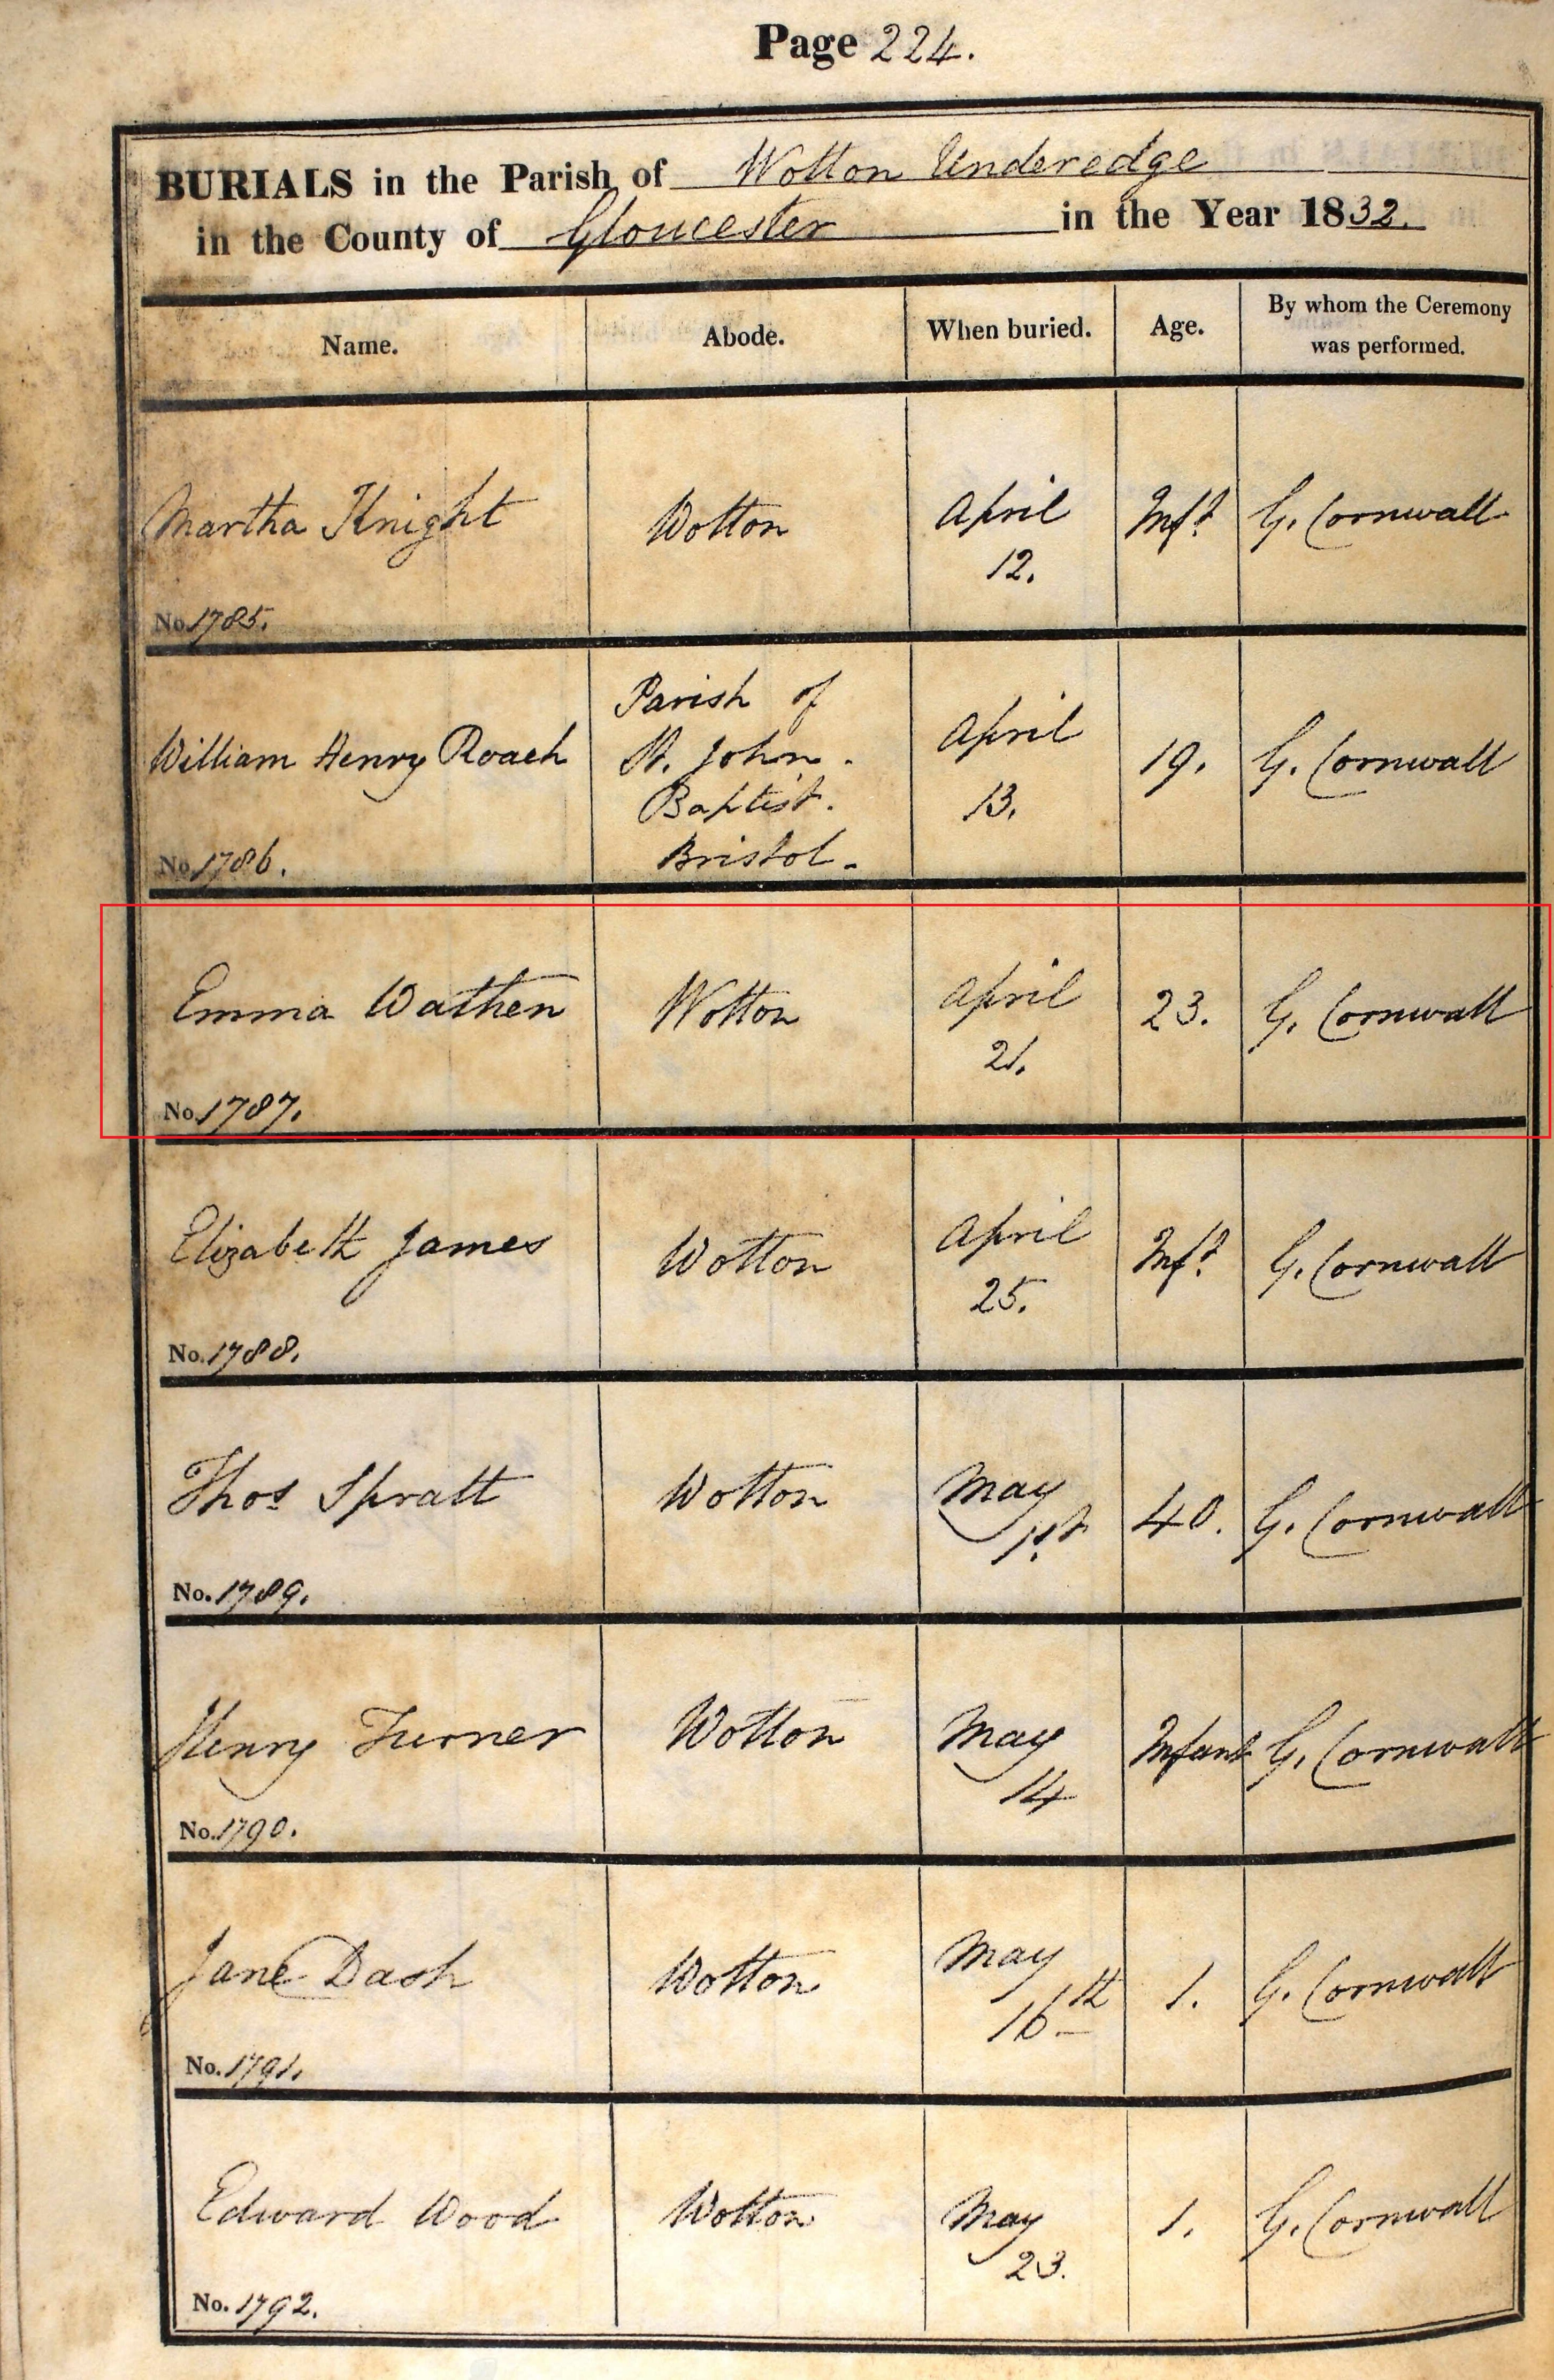 Page 224.
BURIALS in the Parish of Wotton Underedge
in the County of Gloucester in the Year 1832.
Name. Abode. When buried. Age. By whom the Ceremony was performed.
Martha Knight Wotton April 12. Inft G. Cornwall
No. 1785.
William Henry Roach Parish of St. John. Baptist. Bristol. April 13. 19. G. Cornwall
No. 1786.
Emma Wathen Wotton April 21. 23. G. Cornwall
No. 1787.
Elizabeth James Wotton April 25. Inft G. Cornwall
No. 1788.
Thos Spratt Wotton May 1st 40. G. Cornwall
No. 1789.
Henry Turner Wotton May 14 Infant G. Cornwall
No. 1790.
Jane Dash Wotton May 16th 1. G. Cornwall
No. 1791.
Edward Wood Wotton May 23. 1. G. Cornwall
No. 1792.